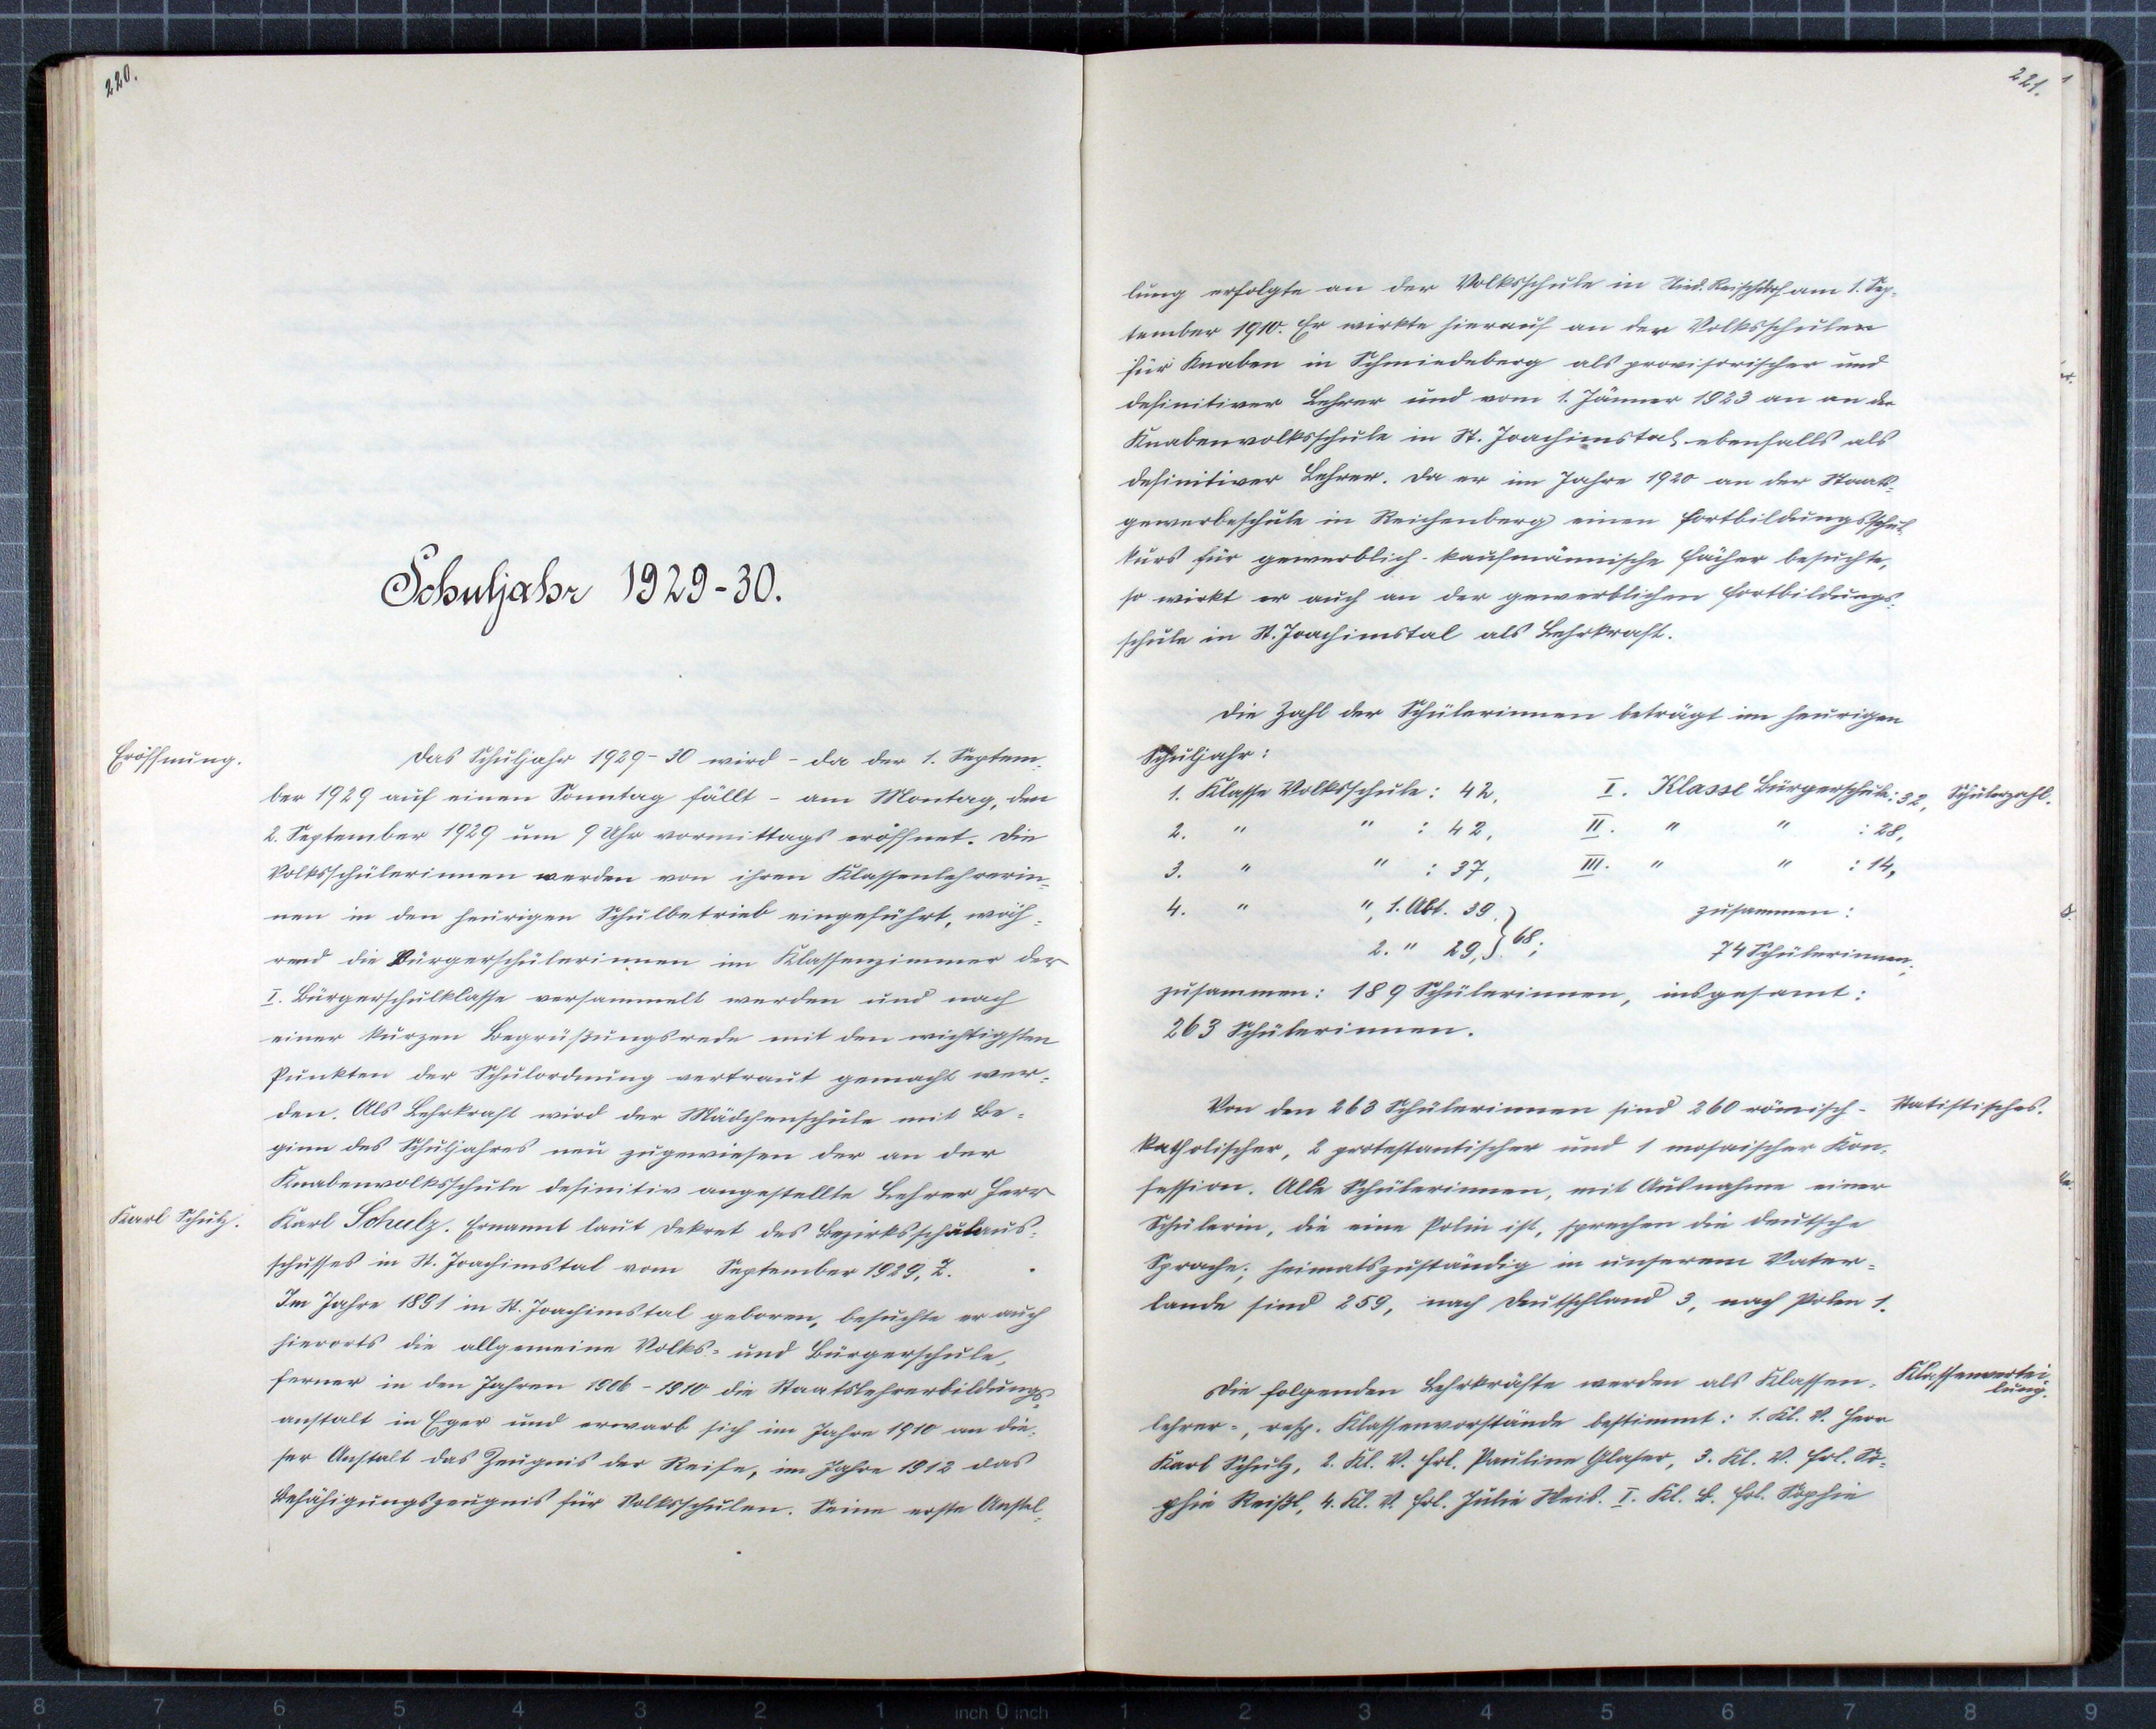 220.
Schuljahr 1929-30.
Eröffnung.
Das Schuljahr 1929-30 wird - da der 1. Septem-
ber 1929 auf einen Sonntag fällt - am Montag, den
2. September 1929 um 9 Uhr vormittags eröffnet. Die
Volksschülerinnen werden von ihren Klassenlehrerin-
nen in den heurigen Schulbetrieb eingeführt, wäh-
rend die Bürgerschülerinnen im Klassenzimmer der
I. Bürgerschulklasse versammelt werden und nach
einer kurzen Begrüßungsrede mit den wichtigsten
Punkten der Schulordnung vertraut gemacht wer-
den. Als Lehrkraft wird der Mädchenschule mit Be-
ginn des Schuljahres neu zugewiesen der an der
Knabenvolksschule definitiv angestellte Lehrer Herr
Karl Schulz.
Karl Schulz. Ernannt laut Dekret des Bezirksschulaus-
schusses in St. Joachimstal vom September 1929, Z.
Im Jahre 1891 in St. Joachimstal geboren, besuchte er auch
hierorts die allgemeine Volks- und Bürgerschule,
ferner in den Jahren 1906-1910 die Staatslehrerbildungs-
anstalt in Eger und erwarb sich im Jahre 1910 an die-
ser Anstalt das Zeugnis der Reife, im Jahre 1912 das
Befähigungszeugnis für Volksschulen. Seine erste Anstel-
221.
lung erfolgte an der Volksschule in Nied. Reischdorf am 1. Sep-
tember 1910. Er wirkte hierauf an der Volksschulen
für Knaben in Schmiedeberg als provisorischer und
definitiver Lehrer und vom 1. Jänner 1923 an an der
Knabenvolksschule in St. Joachimstal ebenfalls als
definitiver Lehrer. Da er im Jahre 1920 an der Staats-
gewerbeschule in Reichenberg einen Fortbildungsschul-
kurs für gewerblich-kaufmännische Fächer besuchte,
so wirkt er auch an der gewerblichen Fortbildungs-
schule in St. Joachimstal als Lehrkraft.
Die Zahl der Schülerinnen beträgt im heurigen
Schuljahr:
1. Klasse Volksschule: 42, I. Klasse Bürgerschule: 32, Schülerzahl.
2. " " : 42, II. " " : 28,
3. " " : 37, III. " " : 14,
4. " ", 1. Abt. 39 zusammen:
2. " 29, } 68; 74 Schülerinnen,
zusammen: 189 Schülerinnen, insgesamt:
263 Schülerinnen.
Von den 263 Schülerinnen sind 260 römisch- Statistisches.
katholischer, 2 protestantischer und 1 mosaischer Kon-
fession. Alle Schülerinnen, mit Ausnahme einer
Schülerin, die eine Polin ist, sprechen die deutsche
Sprache; heimatszuständig in unserem Vater-
lande sind 259, nach Deutschland 3, nach Polen 1.
Die folgenden Lehrkräfte werden als Klassen- Klassenvertei-
lung.
lehrer-, resp. Klassenvorstände bestimmt: 1. Kl. V. Herr
Karl Schulz, 2. Kl. V. Frl. Pauline Glaser, 3. Kl. V. Frl. So-
phie Reißl, 4. Kl. V. Frl. Julie Weis. I. Kl. B. Frl. Sophie
8 7 6 5 4 3 2 1 inch 0 inch 1 2 3 4 5 6 7 8 9